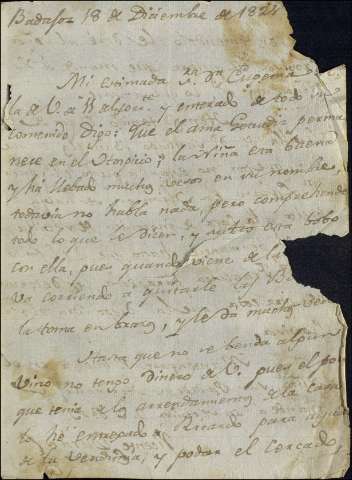 Badajoz 18 de Diciembre de 1824
Mi estimada Sra Da Eugenia
la de V. de y enterada de todo su
contenido digo: que el ama perma
nece en el Ospicio; la Niña está buena
y há llebado muchos besos en su nombre,
todavia no habla nada, pero comprehende
todo lo que le dicen, y está bobo
con ella, pues quando viene de la
va corriendo á quitarle la
la toma en brazos, y le dá muchos
Hasta que no se benda algun
vino no tengo dinero de V. pues el
que tenia de los arrendamientos de la Casa
lo hé entregado á Ricardo para ayuda
de la vendimia, y podar el cercado,